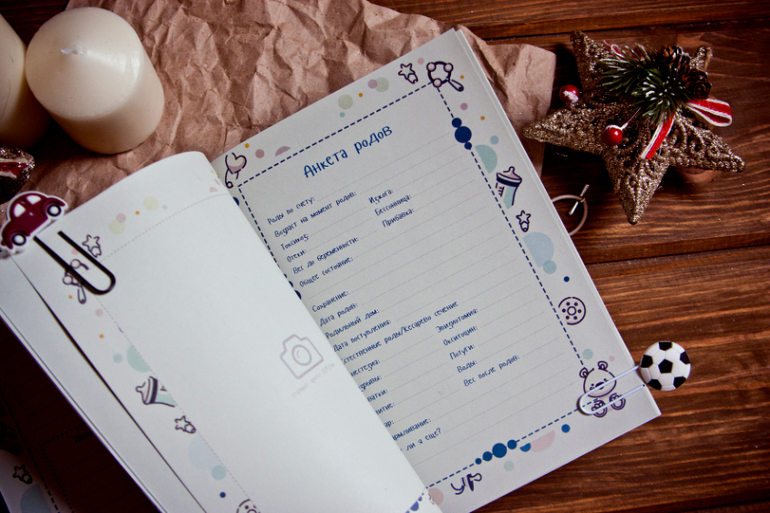 Анкета родов
Роды по счету:
Возраст на момент родов:
Токсикоз:
Отеки:
Вес до беременности:
Общее состояние:
Изжога:
Бессонница:
Прибавка:
Сохранение:
Дата родов:
Родильный дом:
Дата поступления:
Естественные роды/Кесарево сечение
Эпизиотомия:
Окситоцин:
Потуги:
Воды:
Вес после родов:
ли а еще?